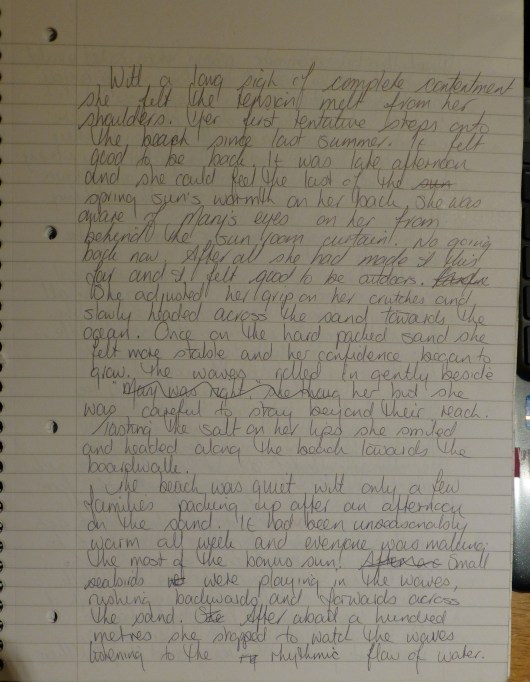 With a long sigh of complete contentment
she felt the tension melt from her
shoulders. Her first tentative steps onto
the beach since last summer. It felt
good to be back. It was late afternoon
and she could feel the last of the sun
spring sun's warmth on her back, she was
aware of Mary's eyes on her from
behind the sun room curtain. No going
back now. After all she had made it this
far and it felt good to be outdoors.
She adjusted her grip on her crutches and
slowly headed across the sand towards the
ocean. Once on the hard packed sand she
felt more stable and her confidence began to
grow. The waves rolled in gently beside
Mary was right she her but she
was careful to stay beyond their reach.
Tasting the salt on her lips she smiled
and headed along the beach towards the
boardwalk.
The beach was quiet with only a few
families packing up after an afternoon
on the sand. It had been unseasonably
warm all week and everyone was making
the most of the bonus sun. Small
seabirds were playing in the waves,
rushing backwards and forwards across
the sand. She After about a hundred
metres she stopped to watch the waves
listening to the rhythmic flow of water.